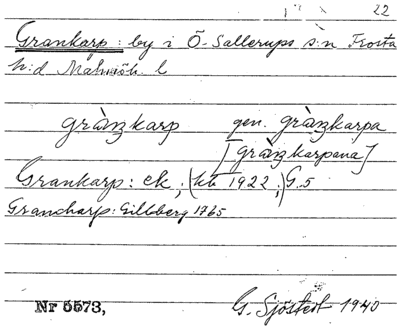 22
Grankarp: by i Ö. Sallerups s:n Frosta
h:d Malmöh. l
gràn̠karp gen. gràn̠karpa
[gràn̠karpana]
Grankarp: ek; (kb 1922;) G.5
Grancharp: Gillberg 1765
Nr 5573,
G. Sjöstedt 1940